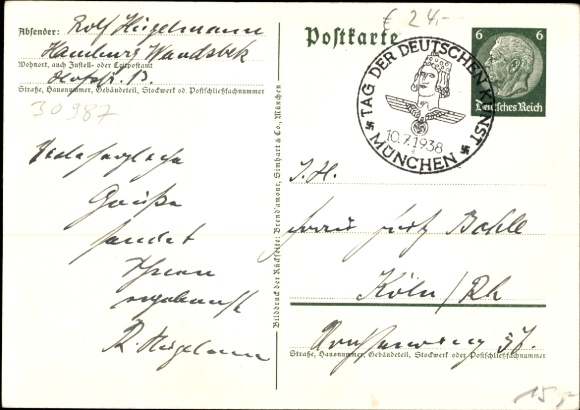 Absender: Rolf Hügelmann
Hamburg Wandsbek
Wohnort, auch Zustell- oder Leitpostamt
Straße, Hausnummer, Gebäudeteil, Stockwerk od. Postschließfachnummer
30987
Grüße
sendet
Ihnen
R. Hügelmann
Bilddruck der Rückseite: Brend'amour, Simhart & Co., München
€ 24,-
Postkarte
6 6
Deutsches Reich
TAG DER DEUTSCHEN KUNST
10.7.1938
MÜNCHEN
Bohle
Köln/Rh
Straße, Hausnummer, Gebäudeteil, Stockwerk oder Postschließfachnummer
15,-